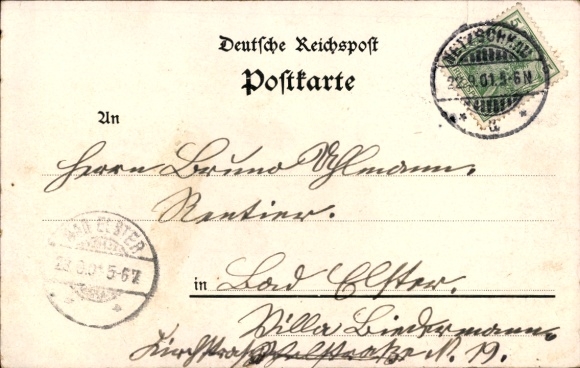 Deutsche Reichspost
Postkarte
An
Herrn Bruno Uhlmann.
Rentier.
in Bad Elster.
Villa Biedermann.
Kirchstraße N. 19.
NETZSCHKAU
22.9.01.5-6N
a
5
BAD ELSTER
23.9.01 5-6V.